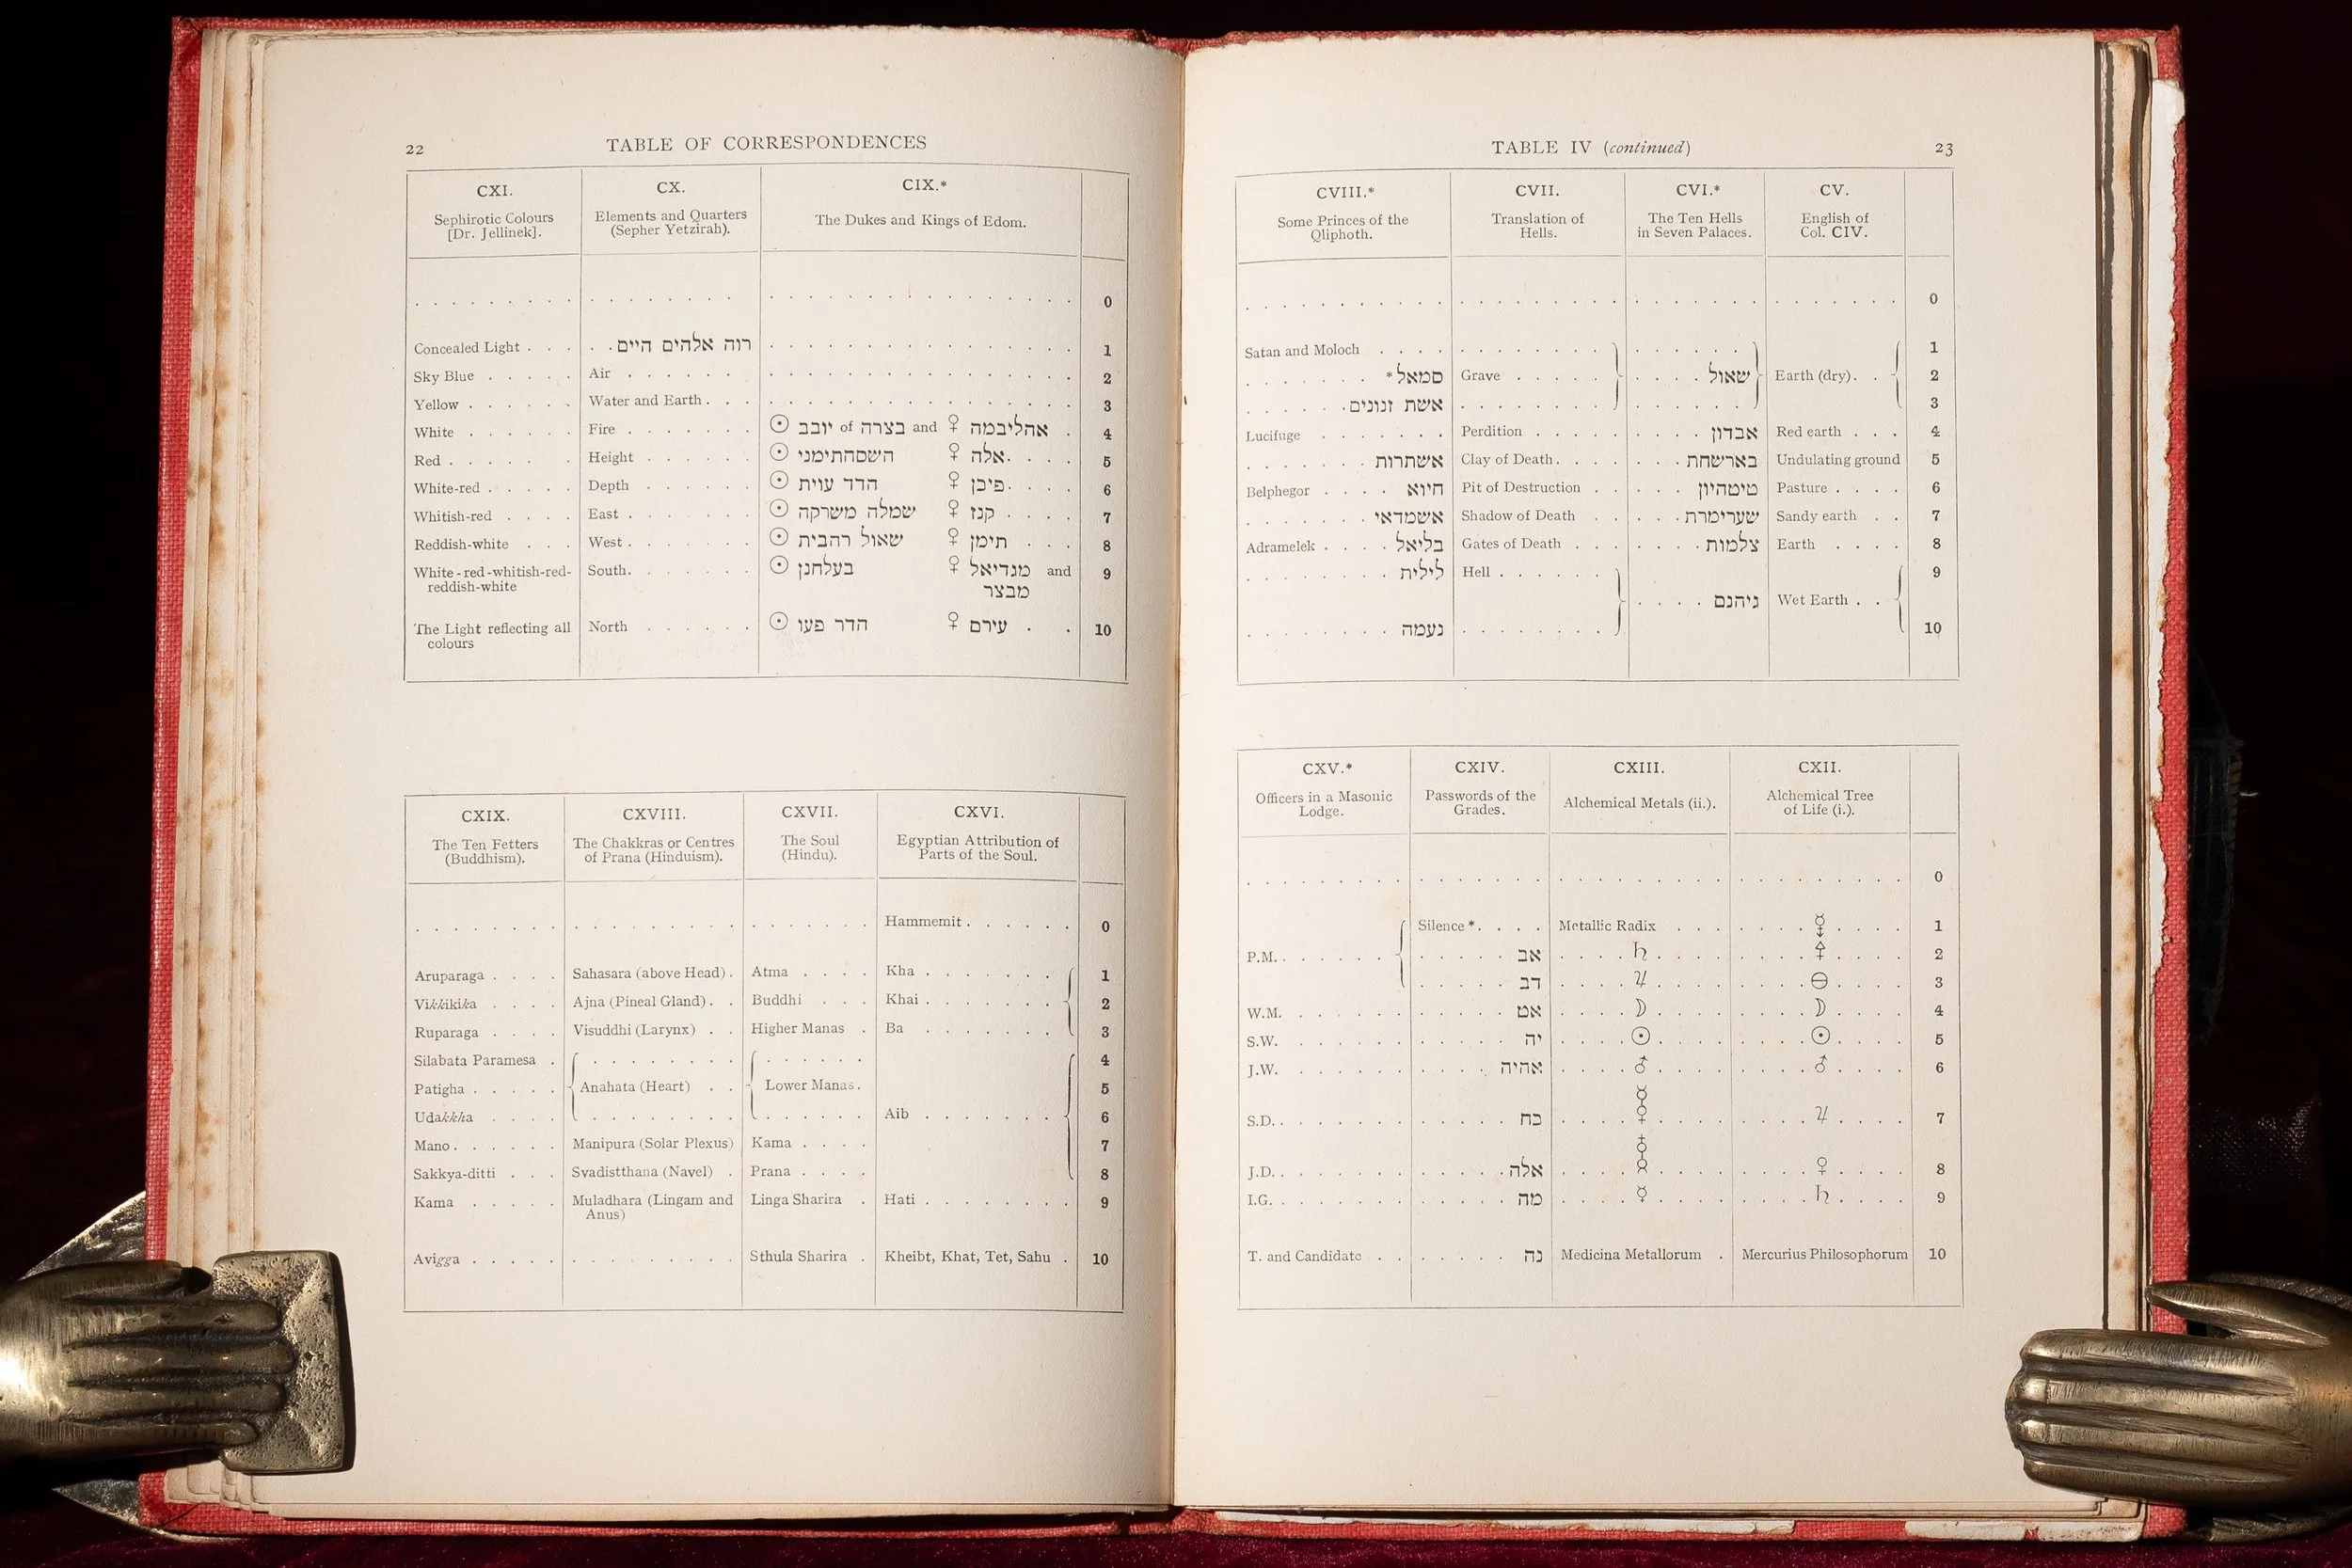 22 TABLE OF CORRESPONDENCES
CXI. CX. CIX.*
Sephirotic Colours Elements and Quarters The Dukes and Kings of Edom.
[Dr. Jellinek]. (Sepher Yetzirah).
0
Concealed Light רוח אלהים חיים 1
Sky Blue Air 2
Yellow Water and Earth 3
White Fire ☉ יובב of בצרה and ♀ אהליבמה 4
Red Height ☉ חשםהתימני ♀ אלה 5
White-red Depth ☉ הדד עוית ♀ פינן 6
Whitish-red East ☉ שמלה משרקה ♀ קנז 7
Reddish-white West ☉ שאול רהבית ♀ תימן 8
White-red-whitish-red- South. ☉ בעלחנן ♀ מגדיאל and 9
reddish-white מבצר
The Light reflecting all North ☉ הדר פעו ♀ עירם 10
colours
CXIX. CXVIII. CXVII. CXVI.
The Ten Fetters The Chakkras or Centres The Soul Egyptian Attribution of
(Buddhism). of Prana (Hinduism). (Hindu). Parts of the Soul.
Hammemit 0
Aruparaga Sahasara (above Head) Atma Kha 1
Vikkikika Ajna (Pineal Gland) Buddhi Khai 2
Ruparaga Visuddhi (Larynx) Higher Manas Ba 3
Silabata Paramesa 4
Patigha Anahata (Heart) Lower Manas 5
Udakkha Aib 6
Mano Manipura (Solar Plexus) Kama 7
Sakkya-ditti Svadistthana (Navel) Prana 8
Kama Muladhara (Lingam and Linga Sharira Hati 9
Anus)
Avigga Sthula Sharira Kheibt, Khat, Tet, Sahu 10
TABLE IV (continued) 23
CVIII.* CVII. CVI.* CV.
Some Princes of the Translation of The Ten Hells English of
Qliphoth. Hells. in Seven Palaces. Col. CIV.
0
Satan and Moloch 1
סמאל* Grave שאול Earth (dry) 2
אשת זנונים 3
Lucifuge Perdition אבדון Red earth 4
אשתרות Clay of Death בארשחת Undulating ground 5
Belphegor חיוא Pit of Destruction טיטהיון Pasture 6
אשמדאי Shadow of Death שערימרת Sandy earth 7
Adramelek בליאל Gates of Death צלמות Earth 8
לילית Hell 9
גיהנם Wet Earth
נעמה 10
CXV.* CXIV. CXIII. CXII.
Officers in a Masonic Passwords of the Alchemical Metals (ii.). Alchemical Tree
Lodge. Grades. of Life (i.).
0
Silence * Metallic Radix ☿ 1
P.M. אב ♄ 🜍 2
דב ♃ 🜔 3
W.M. אט ☽ ☽ 4
S.W. יה ☉ ☉ 5
J.W. אהיה ♂ ♂ 6
S.D. כח ♃ 7
J.D. אלה ♀ 8
I.G. מה ☿ ♄ 9
T. and Candidate נה Medicina Metallorum Mercurius Philosophorum 10